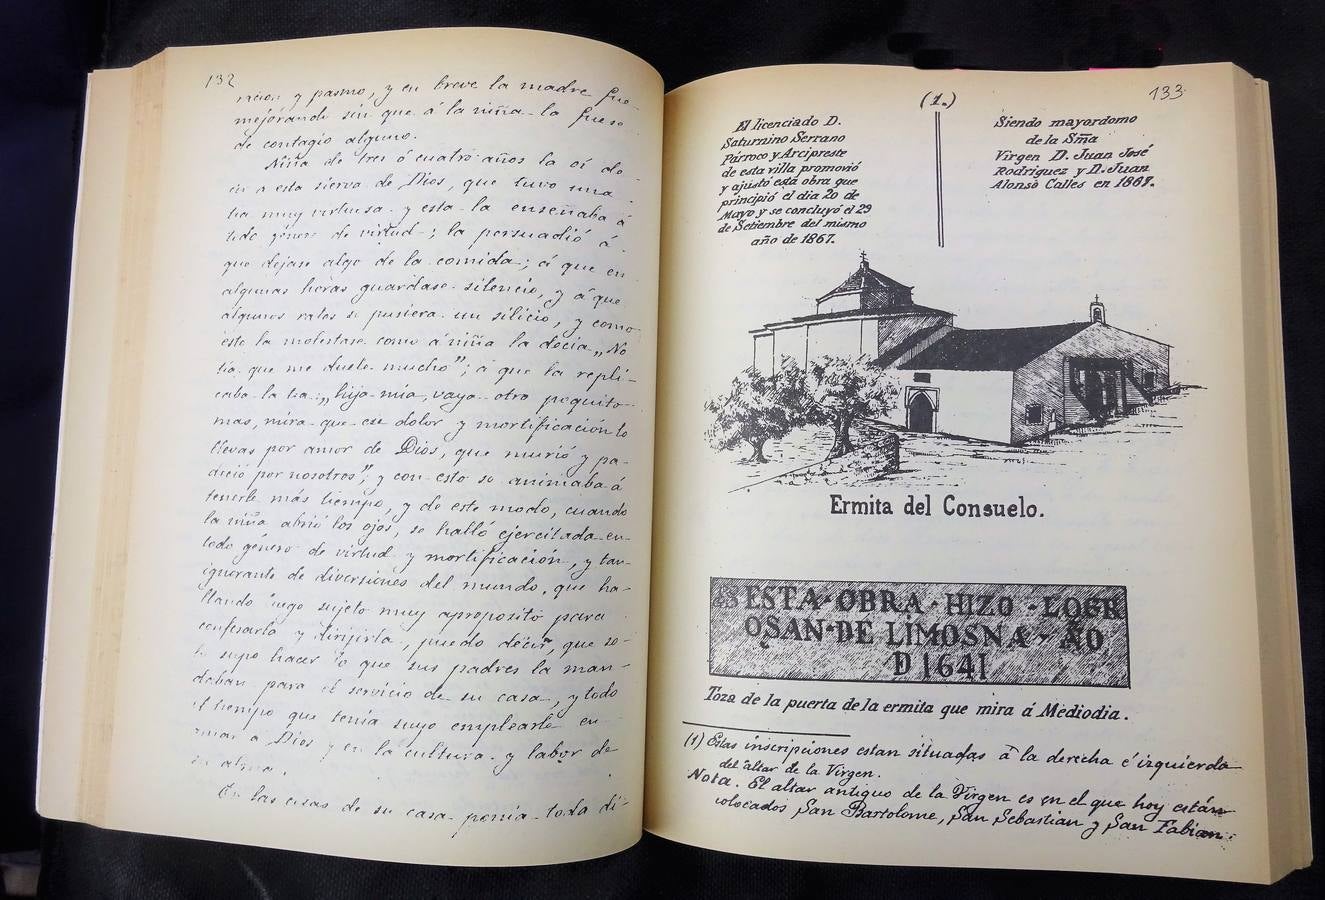 132
racion y pasmo, y en breve la madre fue-
mejorando sin que á la niña la fuese
de contagio alguno.
Niña de tres ó cuatro años la oí de-
cir a esta sierva de Dios, que tuvo una
tia muy virtuosa y esta la enseñaba á
todo género de virtud; la persuadió á
que dejase algo de la comida; á que en
algunas horas guardase silencio, y á que
algunos ratos se pusiera un silicio, y como
este la molestase como á niña la decía „No
tia, que me duele mucho"; á que la repli-
caba la tia: „hija mia, vaya otro poquito
mas, mira que ese dolor y mortificación lo
llevas por amor de Dios, que murió y pa-
deció por nosotros", y con esto se animaba á
tenerle más tiempo, y de este modo, cuando
la niña abrió los ojos, se halló ejercitada en
todo género de virtud y mortificación, y tan
ignorante de diversiones del mundo, que ha-
llando luego sujeto muy aproposito para
confesarla y dirijirla, puedo decir, que so-
lo supo hacer lo que sus padres la man-
daban para el servicio de su casa, y todo
el tiempo que tenía suyo emplearle en
amar a Dios y en la cultura y labor de
su alma.
En las cosas de su casa ponía toda di-
133
(1.)
El licenciado D.
Saturnino Serrano
Párroco y Arcipreste
de esta villa promovió
y ajustó está obra que
principió el dia 20 de
Mayo y se concluyó el 29
de Setiembre del mismo
año de 1867.
Siendo mayordomo
de la Sm̃a
Virgen D. Juan José
Rodriguez y D. Juan
Alonso Calles en 1867.
Ermita del Consuelo.
ESTA·OBRA·HIZO·LOGR
OSAN·DE LIMOSNA·ÃO
D 1641
Toza de la puerta de la ermita que mira á Mediodia.
(1) Estas inscripciones estan situadas á la derecha é izquierda
del altar de la Virgen.
Nota. El altar antiguo de la Virgen es en el que hoy están
colocados San Bartolome, San Sebastian y San Fabian.